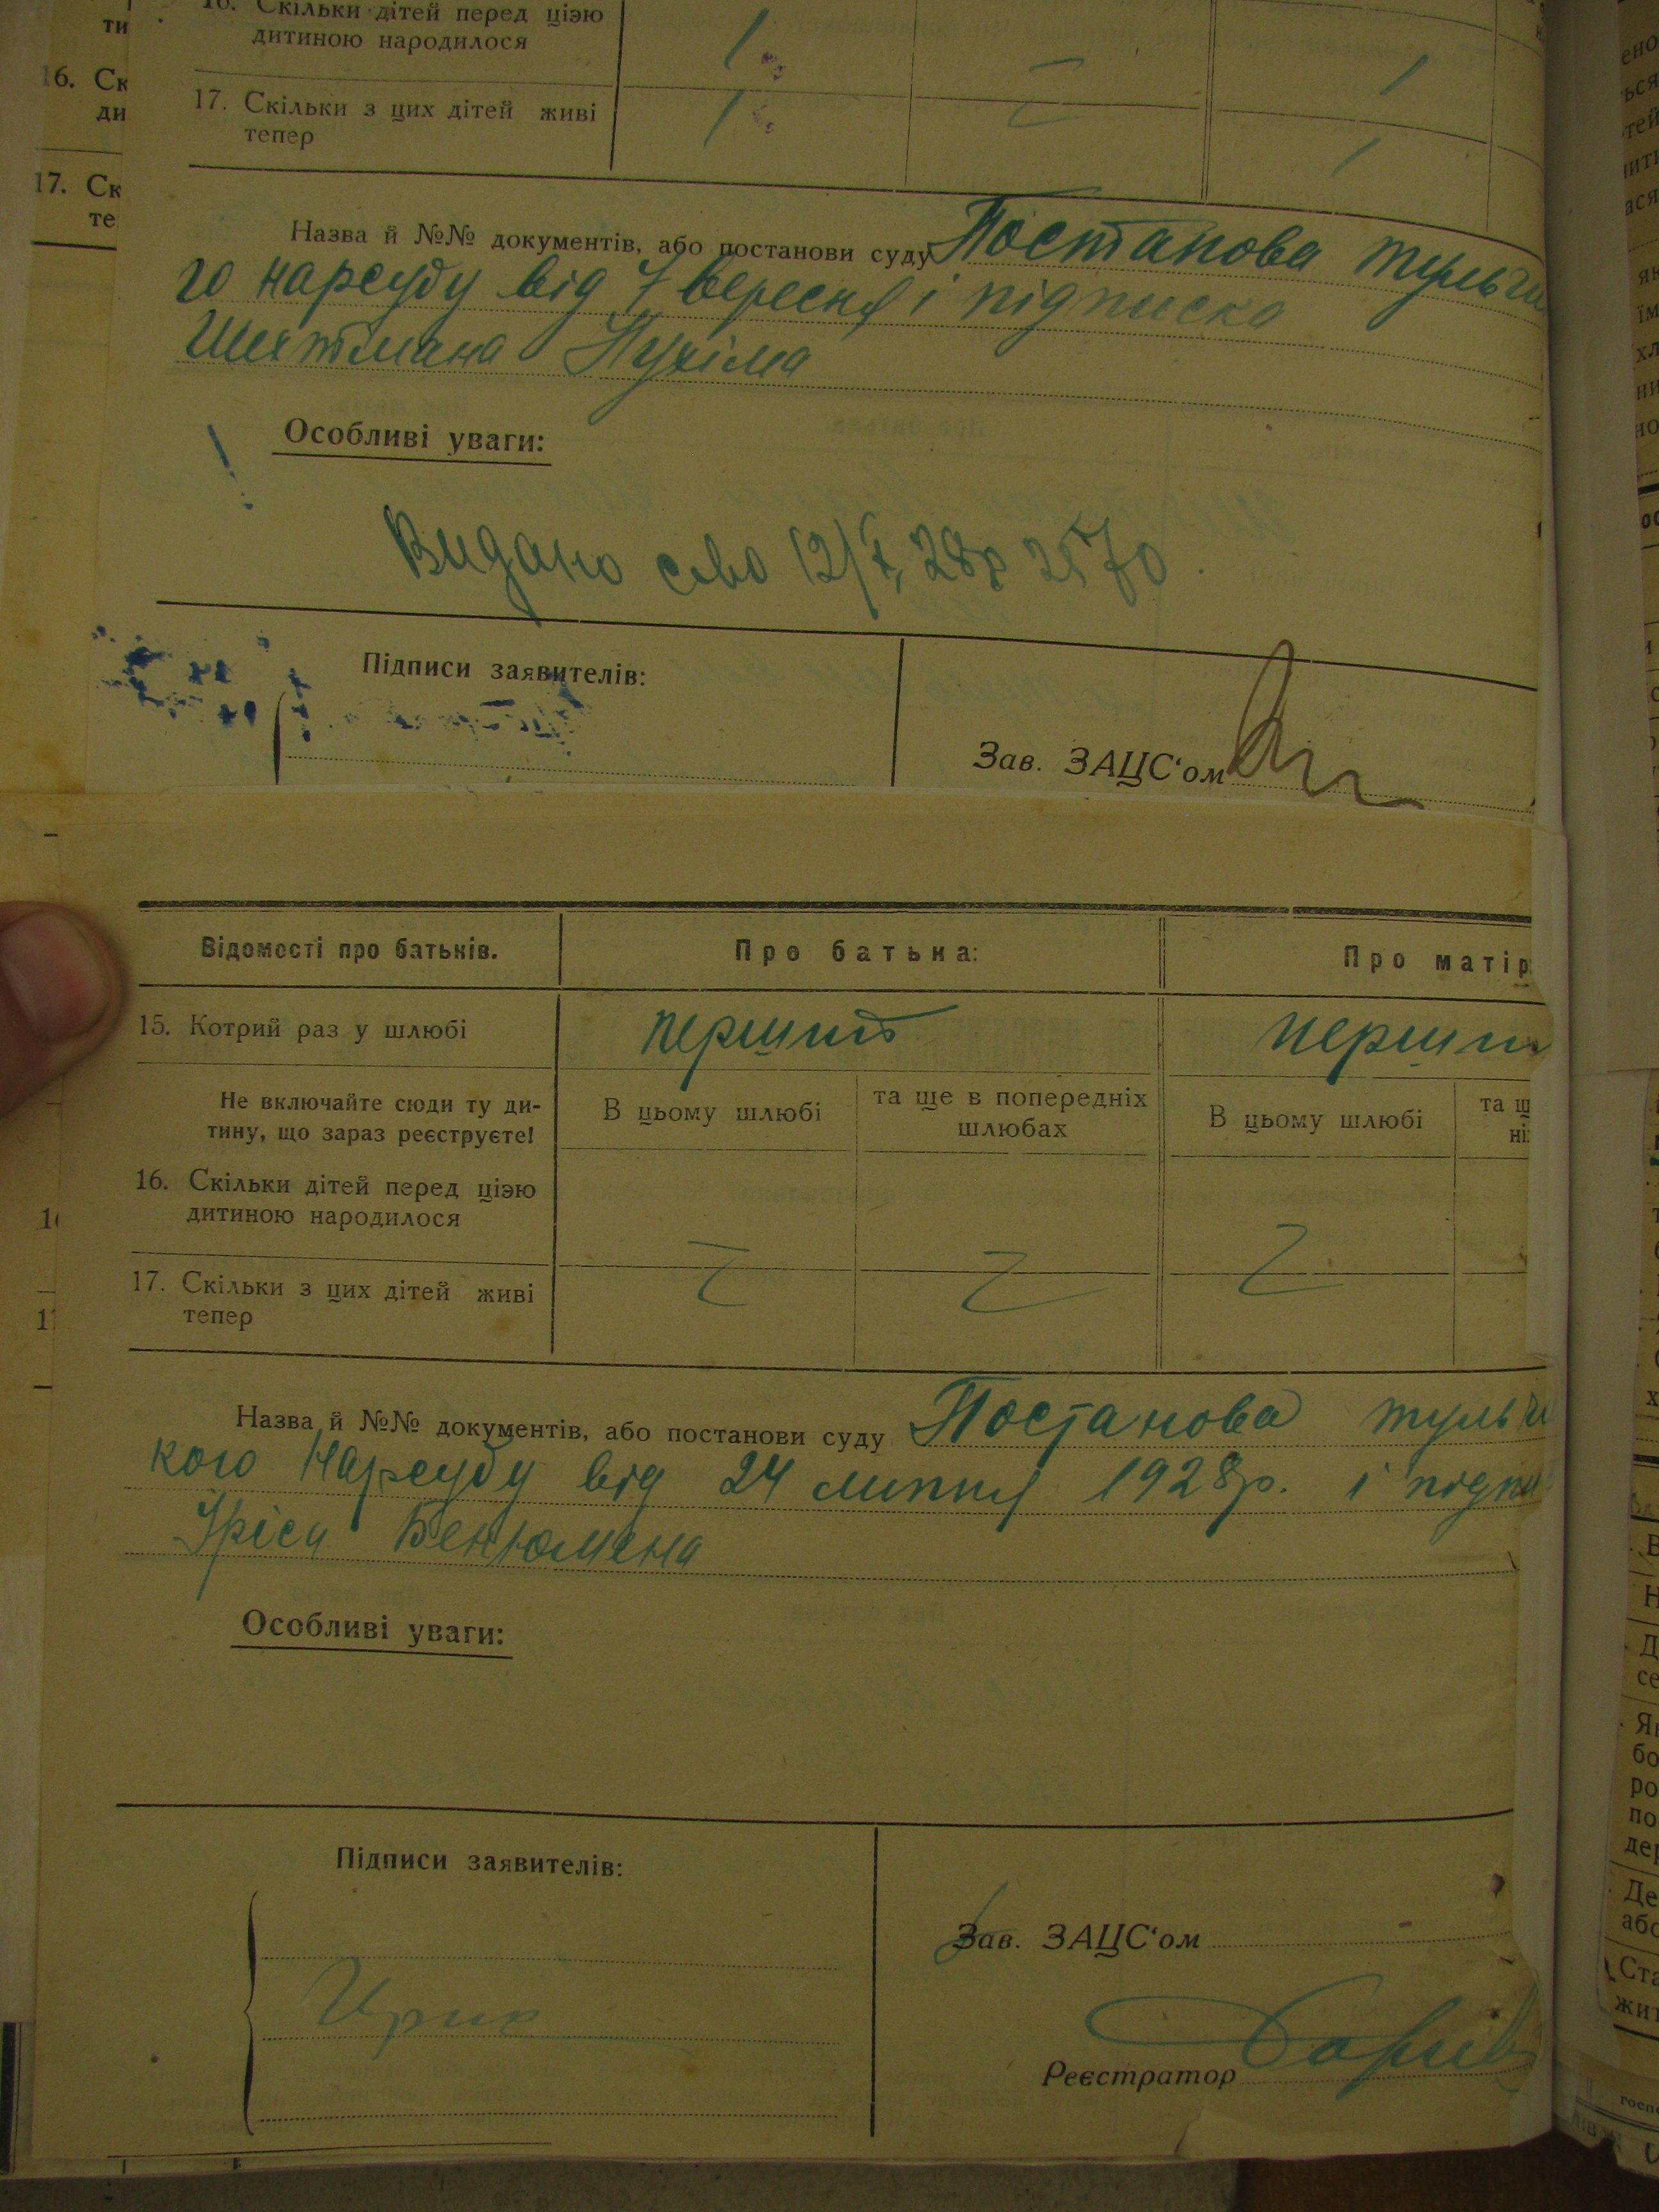 16. Скільки дітей перед ціэю
дитиною народилося
17. Скільки з цих дітей живі
тепер
Назва й №№ документів, або постанови суду Постанова тульчи
го нарсуду від 7 вересня і підписка
Шихтмана Нухіма
Особливі уваги:
Видано 12/X, 28р 2570.
Підписи заявителів:
Зав. ЗАЦС'ом
Відомості про батьків.
Про батька:
Про матір
15. Котрий раз у шлюбі
перший
перши
Не включайте сюди ту ди-
тину, що зараз реєструєте!
В цьому шлюбі
та ще в попередніх
шлюбах
В цьому шлюбі
та щ
ніх
16. Скільки дітей перед ціэю
дитиною народилося
17. Скільки з цих дітей живі
тепер
Назва й №№ документів, або постанови суду Постанова тульчи
кого Нарсуду від 24 липня 1928р. і підпи
Уріса Бенюмена
Особливі уваги:
Підписи заявителів:
Зав. ЗАЦС'ом
Реєстратор